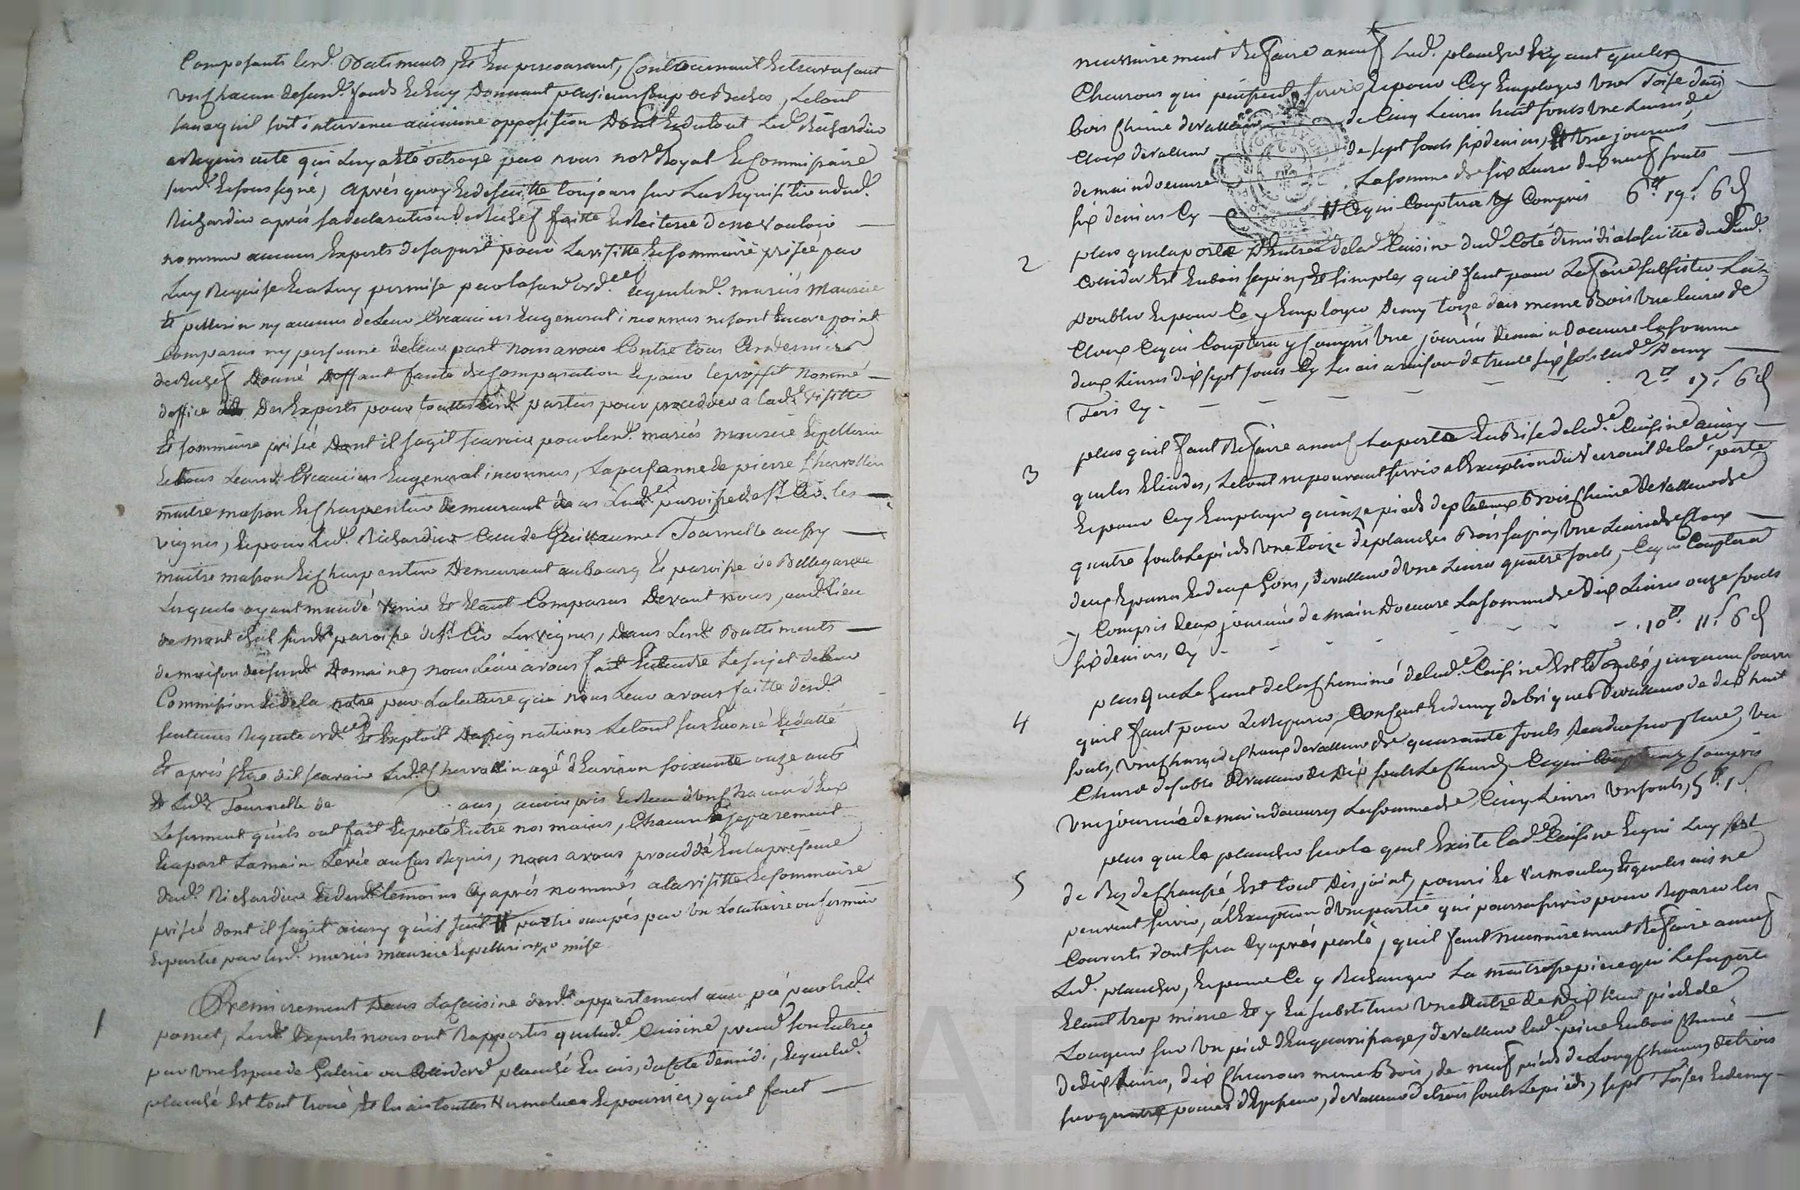 Composants lesd. Batiments et En parcourant, Contournant Et traversant
un chacun desand. fonds Et En y Donnant plusieurs Coups de Beches, Le tout
sans quil soit intervenu aucune opposition Dont Et du tout Led. Richardier
a Requis acte qui Luy a Eté octroyé par nous not. Royal Et Commissaire
surd. Et soussigné, après quoy Et de suitte toujours sur La Requisition dud.
Richardier après sa declaration de Rechef faitte Et Reiterée de ne vouloir
nommer aucuns Experts de sa part pour La visitte Et sommaire prisée par
Luy Requise Et a Luy permise par la susd. ord. Et que lesd. mariés Maurice
Et pellerin ny aucuns de Leurs Creanciers En general inconnus ne sont Encore point
Comparus ny personne de leur part nous avons Contre tous Ces derniers
de Rechef Donné Deffaut faute de Comparution Et pour le proffit nommé
doffice Des Experts pour toutes Lesd. parties pour proceder a lad. visitte
Et sommaire prisée Dont il sagit scavoir pour lesd. mariés maurice Et pellerin
Et tous Leursd. Creanciers En general inconnus, La personne de pierre Chervollin
maitre masson Et charpentier demeurant dans Lad. paroisse de St. Cir les
vignes, Et pour Led. Richardier Claude Guillaume Tournelle aussy
maitre masson Et charpentier Demeurant au bourg Et paroisse de Bellegarde
Lesquels ayant mandé venir Et Etant Comparus Devant nous, aud. Lieu
de mont surd. paroisse de St. Cir Les vignes, Dans Lesd. Battiments
de maison desusd. Domaines, nous Leur avons fait Entendre Le sujet de leur
Commission Et de la notre par La lecture que nous Leur avons faitte desd.
sentences Requete ord. Et Exploit Dassignations Le tout sus Enoncé Et datté
Et après Etre dit scavoir Led. Chervollin agé d'Environ soixante onze ans
Et Led. Tournelle de ans, avoir pris Et Receu d'un chacun d'Eux
Le serment quils ont fait Et preté Entre nos mains, Chacun separement
Et a part La main Levée au cas Requis, nous avons procedé En la presence
dud. Richardier Et desd. temoins Cy après nommés a la visitte Et sommaire
prisée dont il sagit ainsy quil suit partie occupés par un Locataire ou fermier
Et partie par lesd. mariés maurice Et pellerin
1 Premierement Dans La Cuisine desd. appartement
Lesd. Experts nous ont Rapportés que lad. Cuisine prend son Entrée
par une Espece de Galerie ou Coridord planché En ais, du Coté de midi, Et que led.
planché Est tout troué, Et les ais toutes vermolues Et pourries, quil faut
necessairement Refaire aneuf Led. plancher Ny ayant que les
Chevrons qui peuvent servir Et pour Cy Employer une Toise d'ais
bois Chene de valleur de Cinq Livres huit souls une Livre de
Cloux de valleur de sept souls six deniers, Et une journée
de main doeuvre La somme de six Livres dix neuf souls
six deniers Cy # Cequi Comptera y Compris 6# 19s 6d
2 plus que la porte D'Entrée de lad. Cuisine dud. Coté de midi a la suitte dud.
Coridor Est En bois sapin, Et simple, quil faut pour La faire subsister La
Doubler Et pour Ce y Employer Demy toise dais meme Bois une Livre de
Cloux Cequi Comptera y Compris une journée de main doeuvre la somme
deux Livres dix sept souls Cy Les ais a raison de trente six sols Lad. Demy
Toise Cy - 2# 17s 6d
3 plus quil faut Refaire aneuf La porte En Bise de lad. Cuisine ainsy
que les Eliandes, Le tout ne pouvant servir a l'Exception du verrouil de lad. porte
Et pour Cy Employer quinze pieds de plateaux Bois Chene de valleur de
quatre souls Le pied une toize de planches Bois sapin, une Livre de Cloux
deux Eparres Et deux Gons, de valleur d'une Livre quatre souls, Cequi Comptera
y Compris deux journées de main Doeuvre La somme de Dix Livres onze souls
six deniers, Cy - 10# 11s 6d
4 plus que Le haut de la cheminée de lad. Cuisine Est Tombé
quil faut pour Le Reparer, Un Cent Et demy de briques De valleur de dix huit
souls, une charge de chaux de valleur de quarante souls Rendue sur place, un
Chard de sable De valleur de Dix souls Le Chard, Cequi Comptera y Compris
une journée de main doeuvre, La somme de Cinq Livres un souls, 5# 1s
5 plus que le plancher sur le quel Existe lad. Cuisine Et qui Luy sert
de Rez de Chaussée Est tout Disjoint, pourri Et vermoulu, Et que les ais ne
peuvent servir, a l'Exception d'une partie qui pourra servir pour Reparer les
Couverts dont sera Cy après parlé, quil faut necessairement Refaire aneuf
Led. plancher, Et pour Ce y Rechanger La maitresse piece qui Le suporte
Etant trop mince Et y En substituer une autre de Dix huit pieds de
Longueur sur un pied d'Equarrissage, de valleur lad. piece En bois Chene
de dix Livres, dix Chevrons meme Bois, de neuf pieds de Long chacun de trois
sur quatre pouces d'Epesseur, de valleur de trois souls Le pied, sept Toises Et demy